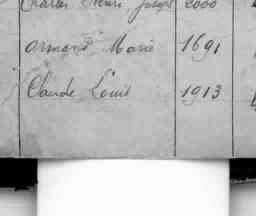 Charles Henri Joseph 2000
Armand Marie 1691
Claude Louis 1913